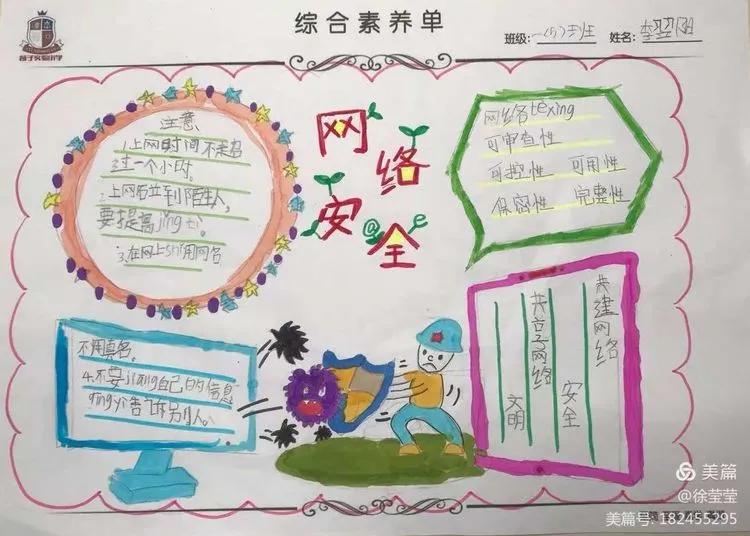 综合素养单
班级:一(5)班 姓名:
注意
1.上网时间不超
过一个小时。
2.上网碰到陌生人,
要提高jing
3.在网上shi用网名
网络安全
@ e
网络texing
可审查性
可控性 可用性
保密性 完整性
不用真名。
4.不要jiang自己的信息
qingyi告诉别人。
共建网络
安全
共享网络
文明
美篇
@徐莹莹
美篇号:182455295